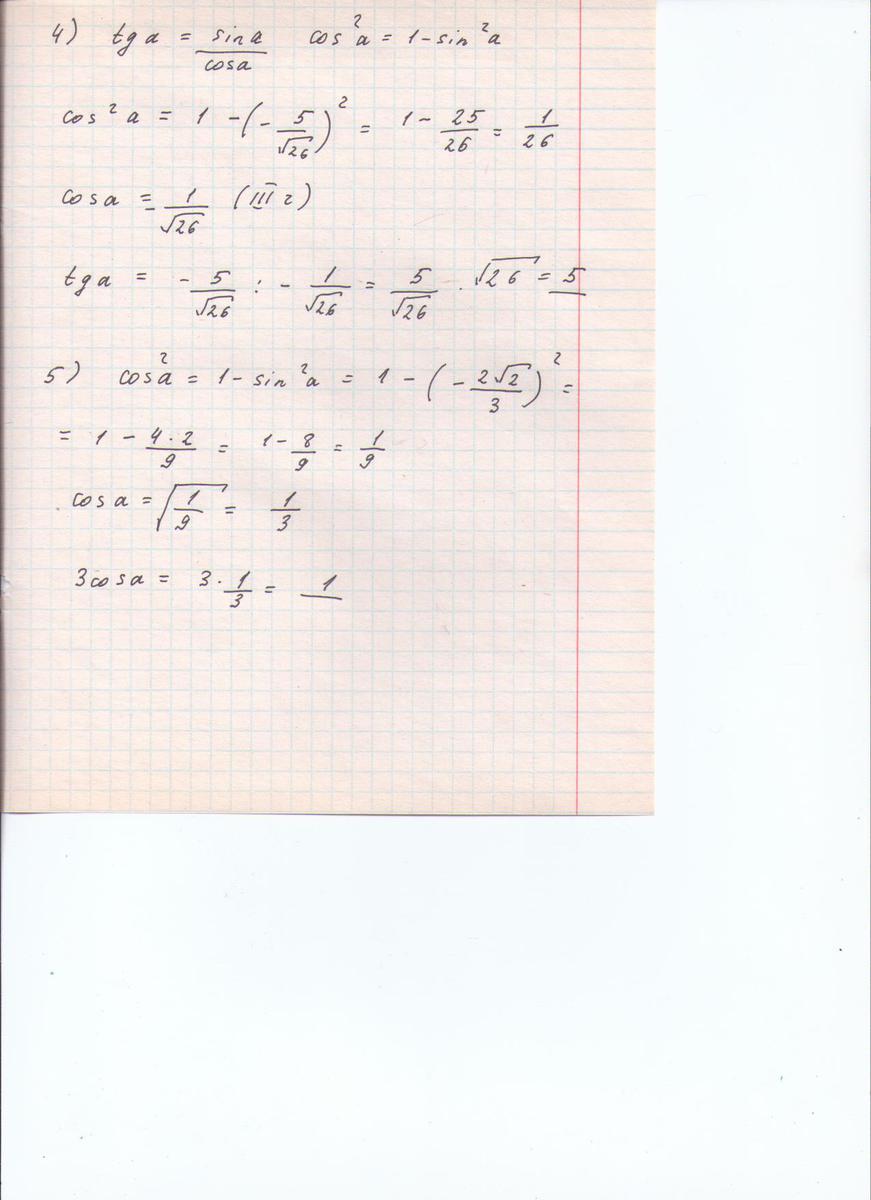 4) tg a = sin a / cos a cos² a = 1 - sin² a
cos² a = 1 - (- 5/√26)² = 1 - 25/26 = 1/26
cos a = - 1/√26 (III г)
tg a = - 5/√26 : - 1/√26 = 5/√26 · √26 = 5
5) cos² a = 1 - sin² a = 1 - (- 2√2/3)² =
= 1 - 4·2/9 = 1 - 8/9 = 1/9
cos a = √(1/9) = 1/3
3 cos a = 3 · 1/3 = 1